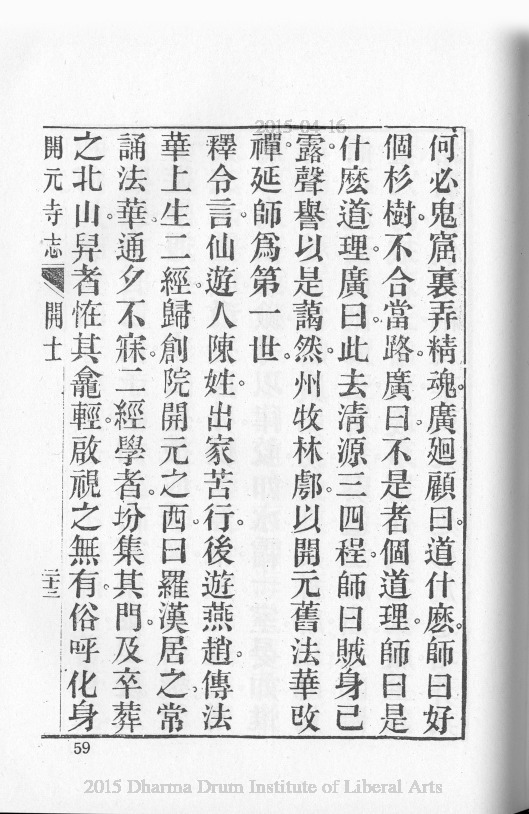 2015-04-16
何必鬼窟裏弄精魂。廣廻顧曰。道什麽。師曰好
個杉樹。不合當路。廣曰。不是者個道理。師曰是
什麽道理。廣曰。此去淸源三四程。師曰賊身已
露。聲譽以是藹然。州牧林鄏。以開元舊法華改
禪。延師爲第一世。
釋令言。仙遊人陳姓。出家苦行。後遊燕趙。傳法
華上生二經。歸創院開元之西。曰羅漢居之。常
誦法華。通夕不寐。二經學者。坋集其門。及卒葬
之北山。舁者恠其龕輕。啟視之無有。俗呼化身
開元寺志 開士 二十三
59
2015 Dharma Drum Institute of Liberal Arts